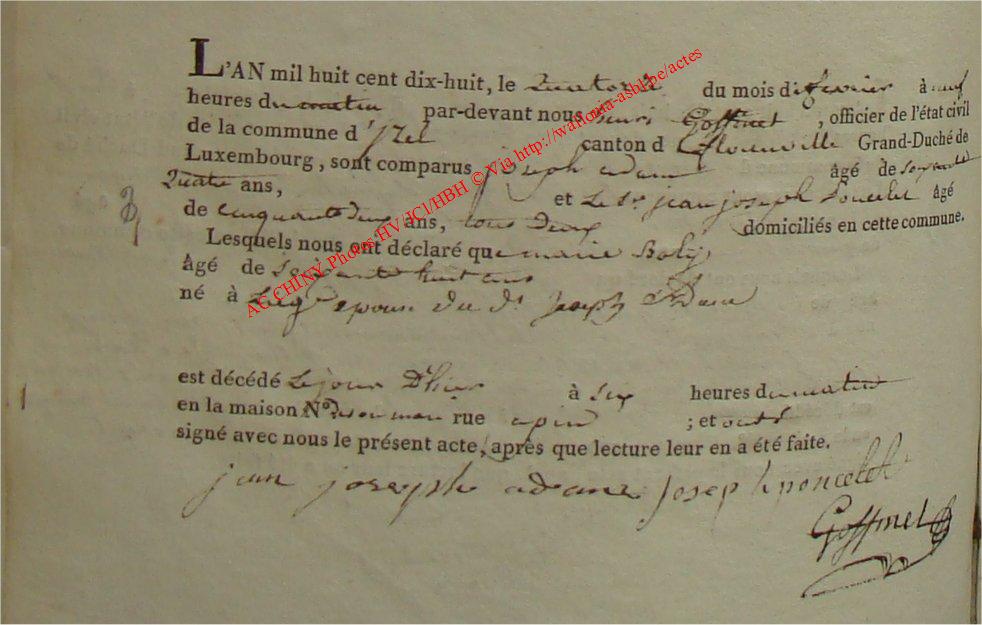 L'AN mil huit cent dix-huit, le Quatorze du mois de fevrier à neuf
heures du matin par-devant nous henri Goffinet, officier de l'état civil
de la commune d'Izel canton de florenville Grand-Duché de
Luxembourg, sont comparus joseph adam âgé de soixante
Quatre ans, et Le Sr jean joseph Poncelet âgé
de cinquante deux ans, tous deux domiciliés en cette commune.
Lesquels nous ont déclaré que marie
âgé de soixante huit ans
né à epouse du dt Joseph Adam
est décédé Le jour D'hier à six heures du matin
en la maison N° de son mari rue a pin ; et ont
signé avec nous le présent acte, après que lecture leur en a été faite.
jean joseph adam josep h poncelet
Goffinet
AC CHINY Photos HV/JCl/HBH © Via http://wallonia-asbl.be/actes